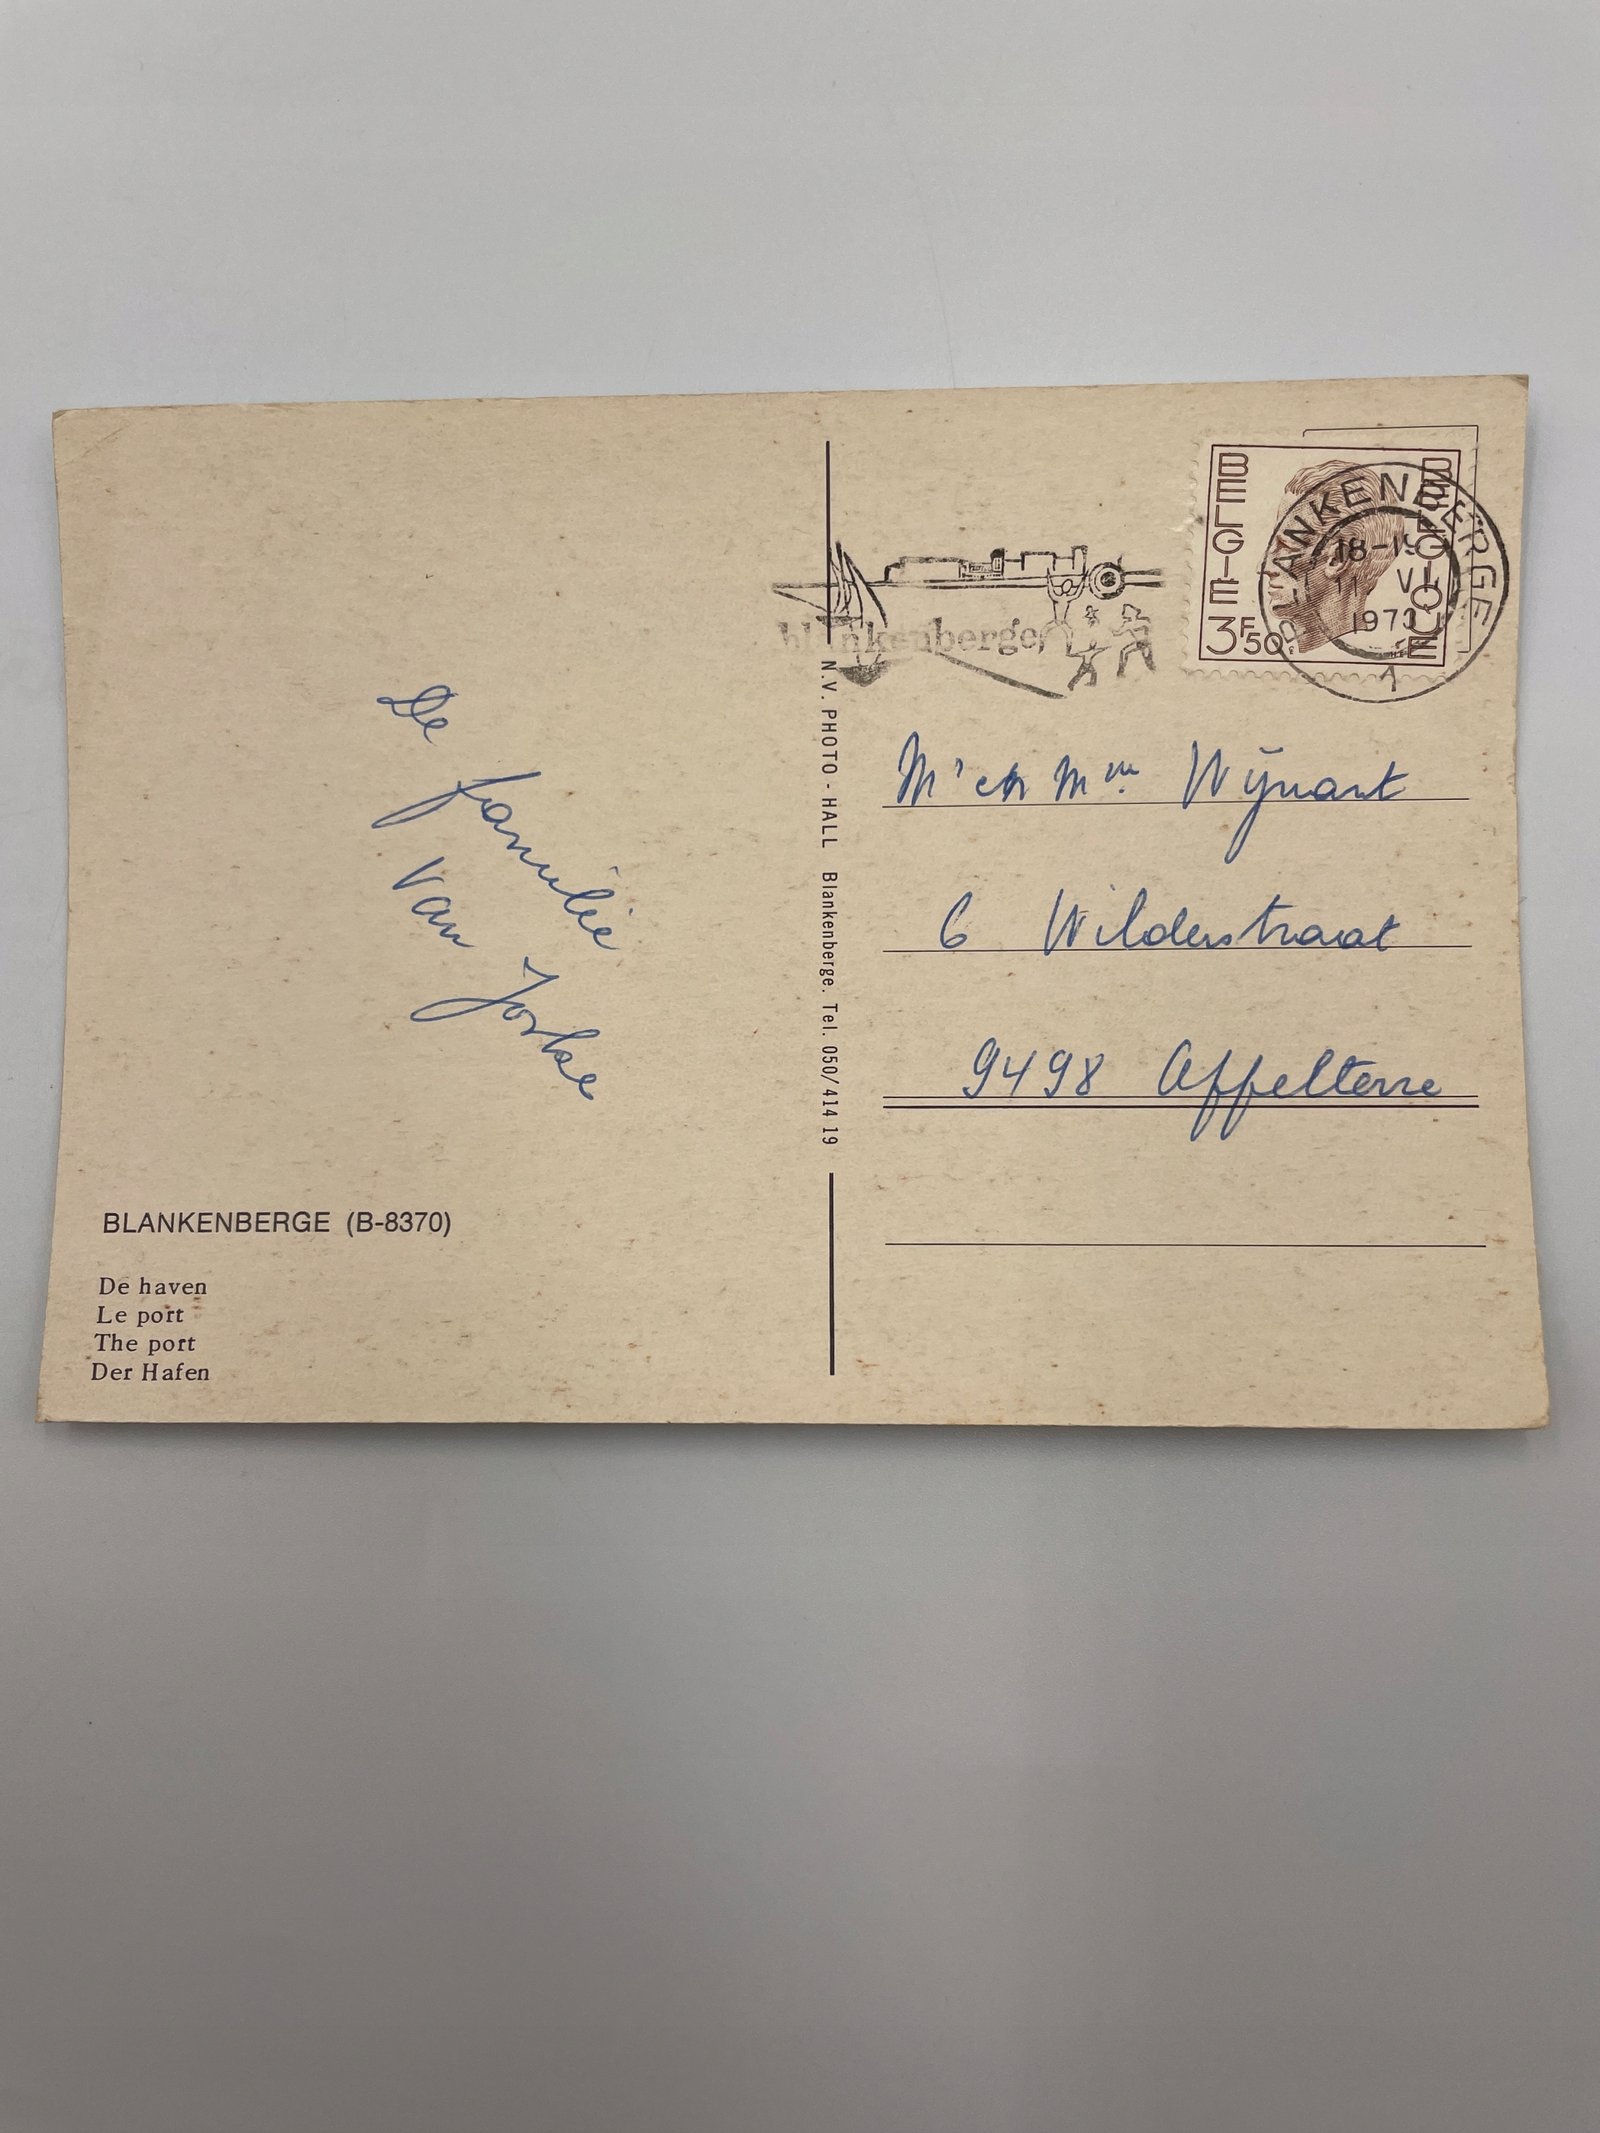 De
familie
Van Joske
BLANKENBERGE (B-8370)
De haven
Le port
The port
Der Hafen
N.V. PHOTO - HALL Blankenberge. Tel. 050/414 19
blankenberge
BELGIE
BELGIQUE
3F50
BLANKENBERGE
18-19
11 VI
1973
1
Mr en Mm. Wijnant
6 Wilderstraat
9498 Appelterre